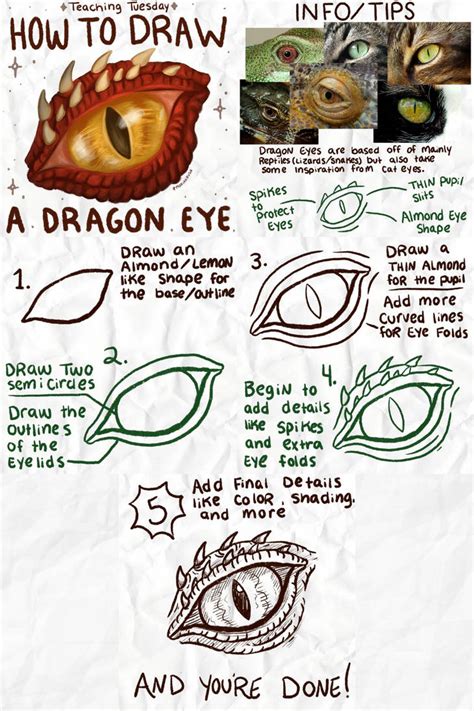 Teaching Tuesday
HOW TO DRAW
A DRAGON EYE
INFO/TIPS
Dragon Eyes are based off of mainly
Reptiles (Lizards/Snakes) but also take
some Inspiration from Cat eyes.
Spikes
to
protect
Eyes
Thin Pupil
Slits
Almond Eye
Shape
1.
Draw an
Almond/Lemon
like Shape for
the base/outline
2.
Draw Two
semicircles
Draw the
outlines
of the
Eyelids
3.
Draw a
Thin Almond
for the pupil
Add more
curved lines
for Eye Folds
4.
Begin to
add details
like spikes
and extra
Eye folds
5
Add Final Details
like Color, Shading,
and more
AND YOU'RE DONE!